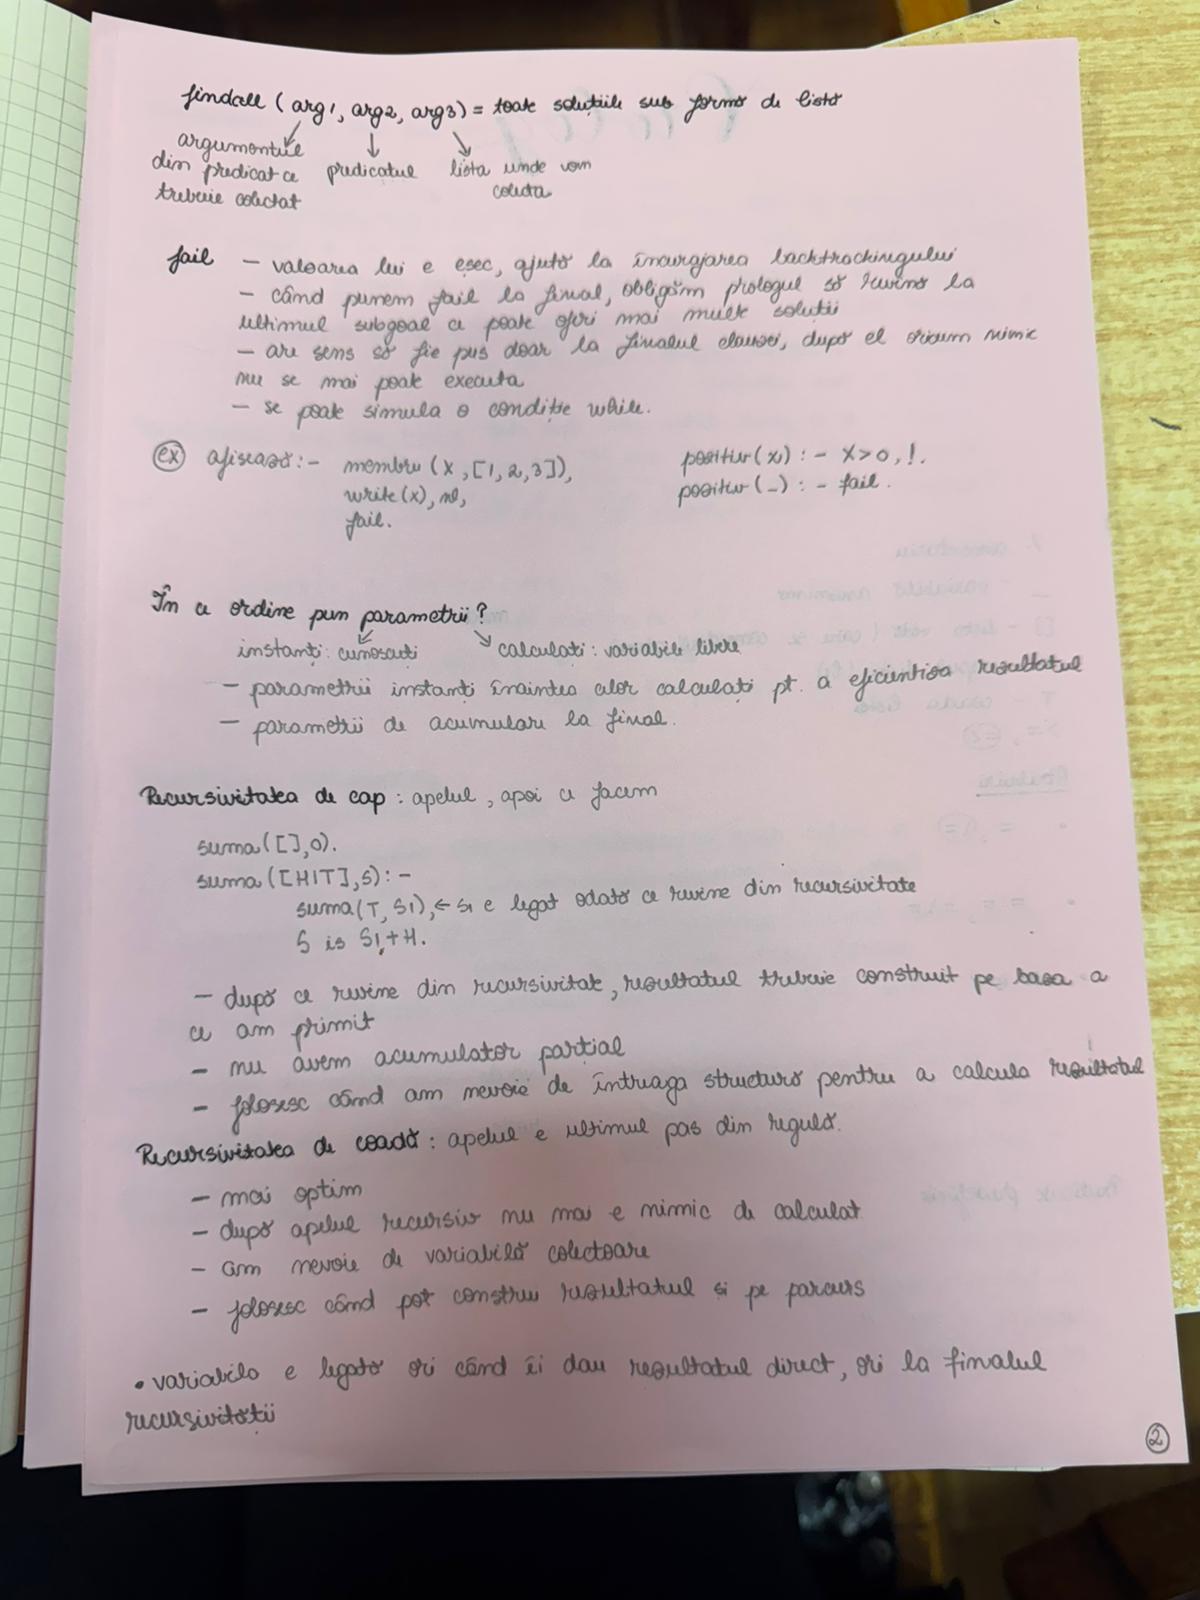 findall (arg1, arg2, arg3) = toate soluțiile sub formă de listă
argumentele
din predicat ce
trebuie colectat
predicatul
lista unde vom
colecta
fail – valoarea lui e eșec, ajută la încurajarea backtrackingului
– când punem fail la final, obligăm prologul să revină la
ultimul subgoal ce poate oferi mai multe soluții
– are sens să fie pus doar la finalul clauzei, după el oricum nimic
nu se mai poate executa
– se poate simula o condiție while.
ex afisează :- membru (X, [1, 2, 3]),
write(x), nl,
fail.
pozitiv(x) :- X>0, !.
pozitiv(_) :- fail.
În ce ordine pun parametrii?
instanți: cunoscuți
calculați: variabile libere
– parametrii instanți înaintea celor calculați pt. a eficientiza rezultatul
– parametrii de acumulare la final.
Recursivitatea de cap: apelul, apoi ce facem
suma([],0).
suma([H|T],S):-
suma(T, S1), ← S1 e legat odată ce revine din recursivitate
S is S1+H.
– după ce revine din recursivitate, rezultatul trebuie construit pe baza a
ce am primit
– nu avem acumulator parțial
– folosesc când am nevoie de întreaga structură pentru a calcula rezultatul
Recursivitatea de coadă: apelul e ultimul pas din regulă.
– mai optim
– după apelul recursiv nu mai e nimic de calculat
– am nevoie de variabilă colectoare
– folosesc când pot construi rezultatul si pe parcurs
• variabila e legată ori când îi dau rezultatul direct, ori la finalul
recursivității
2